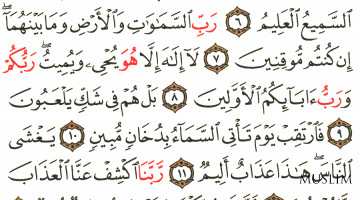 ٱلسَّمِيعُ ٱلْعَلِيمُ ٦ رَبِّ ٱلسَّمَٰوَٰتِ وَٱلْأَرْضِ وَمَا بَيْنَهُمَآ ۖ
إِن كُنتُم مُّوقِنِينَ ٧ لَآ إِلَٰهَ إِلَّا هُوَ يُحْىِۦ وَيُمِيتُ ۖ رَبُّكُمْ
وَرَبُّ ءَابَآئِكُمُ ٱلْأَوَّلِينَ ٨ بَلْ هُمْ فِى شَكٍّ يَلْعَبُونَ
٩ فَٱرْتَقِبْ يَوْمَ تَأْتِى ٱلسَّمَآءُ بِدُخَانٍ مُّبِينٍ ١٠ يَغْشَى
ٱلنَّاسَ ۖ هَٰذَا عَذَابٌ أَلِيمٌ ١١ رَّبَّنَا ٱكْشِفْ عَنَّا ٱلْعَذَابَ
MUSLIM